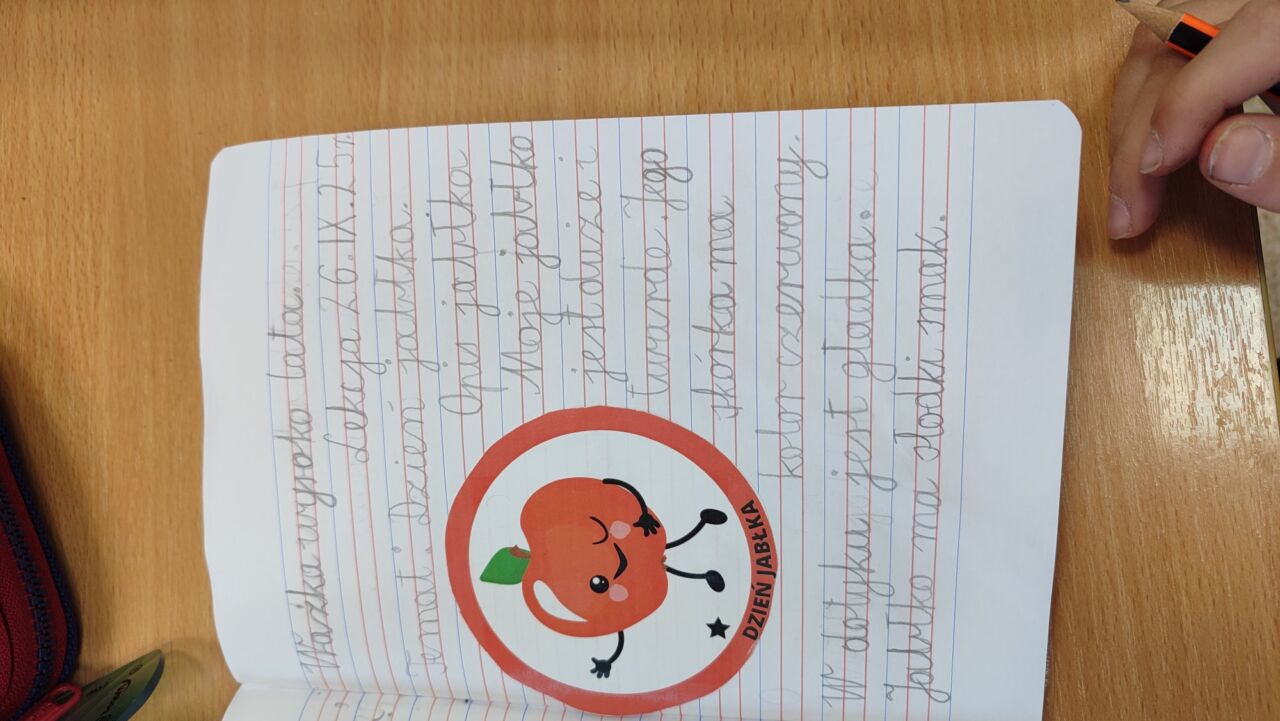 Ważka wysoko lata.
Lekcja 26.IX.25r.
Temat: Dzień jabłka.
Opis jabłka
Moje jabłko
jest duże i
twarde. Jego
skórka ma
kolor czerwony.
DZIEŃ JABŁKA
W dotyku jest gładka.
Jabłko ma słodki smak.